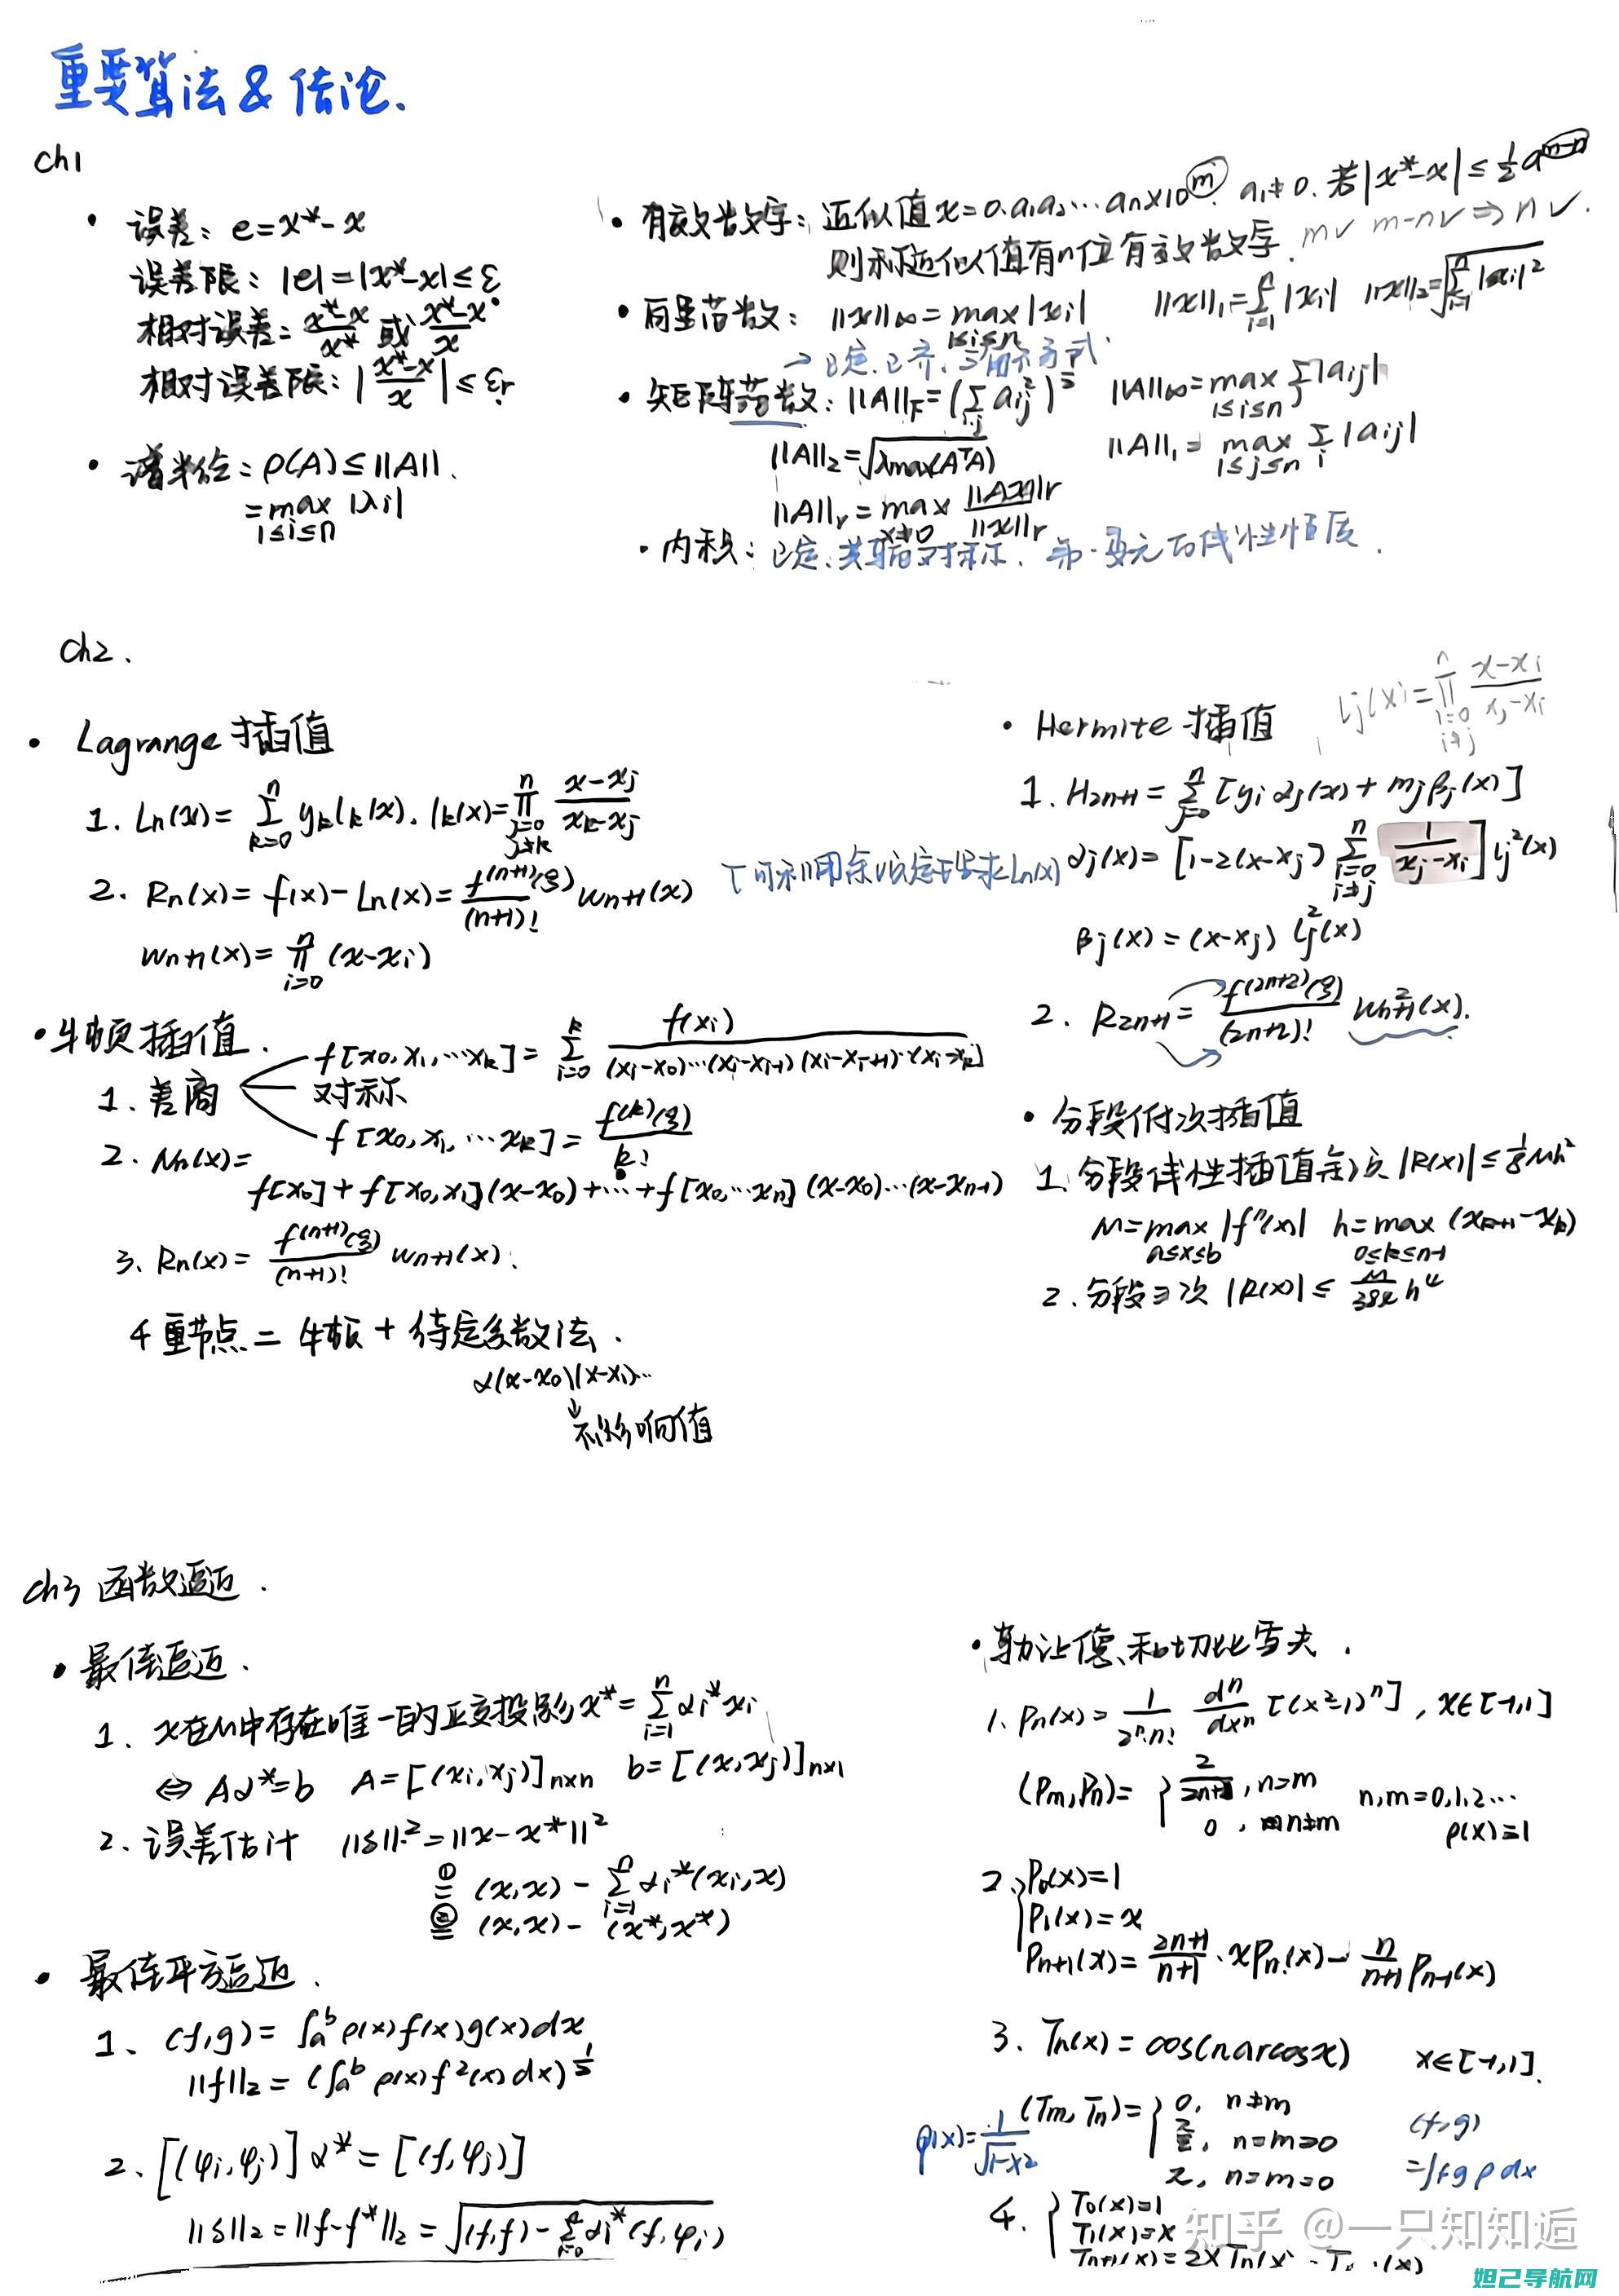 重要算法 & 结论.
ch1
· 误差: e=x*-x
误差限: |e|=|x*-x|≤ε
相对误差: (x*-x)/x* 或 (x*-x)/x
相对误差限: |(x*-x)/x|≤εr
· 谱半径: ρ(A)≤||A||.
=max |λi|
1≤i≤n
· 有效数字: 近似值 x=0.a1a2…an×10^m. a1≠0. 若|x*-x|≤1/2 a^(m-n)
则称近似值有n位有效数字. m✓ m-n✓ ⇒ n✓.
· 向量范数: ||x||∞=max|xi| ||x||1=Σ|xi| ||x||2=√(Σ|xi|²)
1≤i≤n i=1 n
· 矩阵范数: ||A||F=(Σ aij²)^(1/2) ||A||∞=max Σ|aij|
i,j 1≤i≤n j
||A||2=√(λmax(AᵀA)) ||A||1=max Σ|aij|
1≤j≤n i
||A||r=max ||Ax||r/||x||r
x≠0
· 内积: 正定、共轭对称、第一变元的线性性质.
ch2.
· Lagrange 插值
1. Ln(x)=Σ(k=0,n) yk lk(x). lk(x)=Π(j=0,j≠k,n) (x-xj)/(xk-xj)
2. Rn(x)=f(x)-Ln(x)=f^(n+1)(ξ)/(n+1)! wn+1(x)
wn+1(x)=Π(i=0,n) (x-xi)
· 牛顿插值.
1. 差商
f[x0,x1,…xk]=Σ(i=0,k) f(xi)/((xi-x0)…(xi-xi-1)(xi-xi+1)…(xi-xk))
对称
f[x0,x1,…xk]=f^(k)(ξ)/k!
2. Nn(x)=
f[x0]+f[x0,x1](x-x0)+…+f[x0,…xn](x-x0)…(x-xn-1)
3. Rn(x)=f^(n+1)(ξ)/(n+1)! wn+1(x).
4 重节点 = 牛顿 + 待定系数法.
α(x-x0)(x-x1)…
↓
不影响值
· Hermite 插值 lj(x)=Π(i=0,i≠j,n) (x-xi)/(xj-xi)
1. H2n+1=Σ(j=0,n)[yi αj(x)+mj βj(x)]
αj(x)=[1-2(x-xj)Σ(i=0,i≠j,n) 1/(xj-xi)] lj²(x)
βj(x)=(x-xj) lj²(x)
2. R2n+1=f^(2n+2)(ξ)/(2n+2)! wn+1²(x).
· 分段低次插值
1. 分段线性插值余项 |R(x)|≤1/8 Mh²
M=max|f''(x)| h=max(xk+1-xk)
a≤x≤b 0≤k≤n-1
2. 分段三次 |R(x)|≤M/384 h⁴
ch3 函数逼近.
· 最佳逼近.
1. x在M中存在唯一的正交投影 x*=Σ(i=1,n) αi*xi
⇔ Aα*=b A=[(xi,xj)]n×n b=[(x,xj)]n×1
2. 误差估计 ||δ||²=||x-x*||²
①= (x,x)-Σ(i=1,n) αi*(xi,x)
②= (x,x)-(x*,x*)
· 最佳平方逼近.
1. (f,g)=∫a^b ρ(x)f(x)g(x)dx
||f||2=(∫a^b ρ(x)f²(x)dx)^(1/2)
2. [(φi,φj)]α*=[(f,φj)]
||δ||2=||f-f*||2=√((f,f)-Σ(i=0,n) αi*(f,φi))
· 勒让德和切比雪夫.
1. Pn(x)=1/(2ⁿ·n!) dⁿ/dxⁿ[(x²-1)ⁿ], x∈[-1,1]
(Pm,Pn)={2/(2n+1), n=m n,m=0,1,2…
0, n≠m ρ(x)=1
2. {P0(x)=1
P1(x)=x
Pn+1(x)=(2n+1)/(n+1)·xPn(x)-n/(n+1) Pn-1(x)
3. Tn(x)=cos(narccosx) x∈[-1,1].
ρ(x)=1/√(1-x²) (Tm,Tn)={0, n≠m (f,g)
π/2, n=m≠0 =∫fgρdx
π, n=m=0
4. {T0(x)=1
T1(x)=x
Tn+1(x)=2xTn(x)-T (x)
知乎 @一只知知逅
妲己导航网